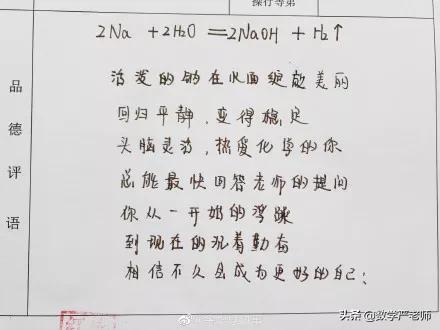 操行等第
2Na + 2H2O =2NaOH + H2↑
活泼的钠在水面绽放美丽
回归平静,变得稳定
头脑灵活,热爱化学的你
总能最快回答老师的提问
你从一开始的浮躁
到现在的沉着勤奋
相信不久会成为更好的自己;
品德评语
头条@数学严老师